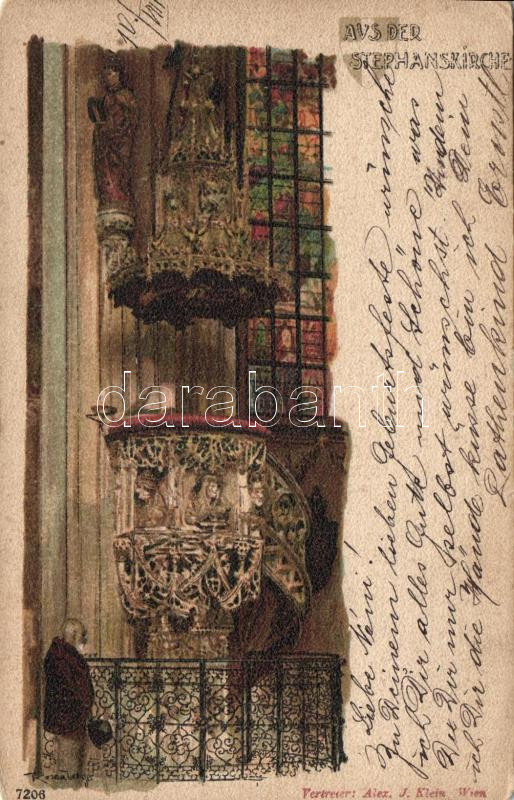 AUS DER
STEPHANSKIRCHE
Liebe Neni!
Zu Deinem lieben Geburtsfeste wünsche
ich Dir alles Gute und Schöne was
Du Dir nur selbst wünschst. Indem
ich Dir die Hände küsse bin ich Dein
Pathenkind Ernst
darabanth.com
7206
Vertreter: Alex. J. Klein, Wien